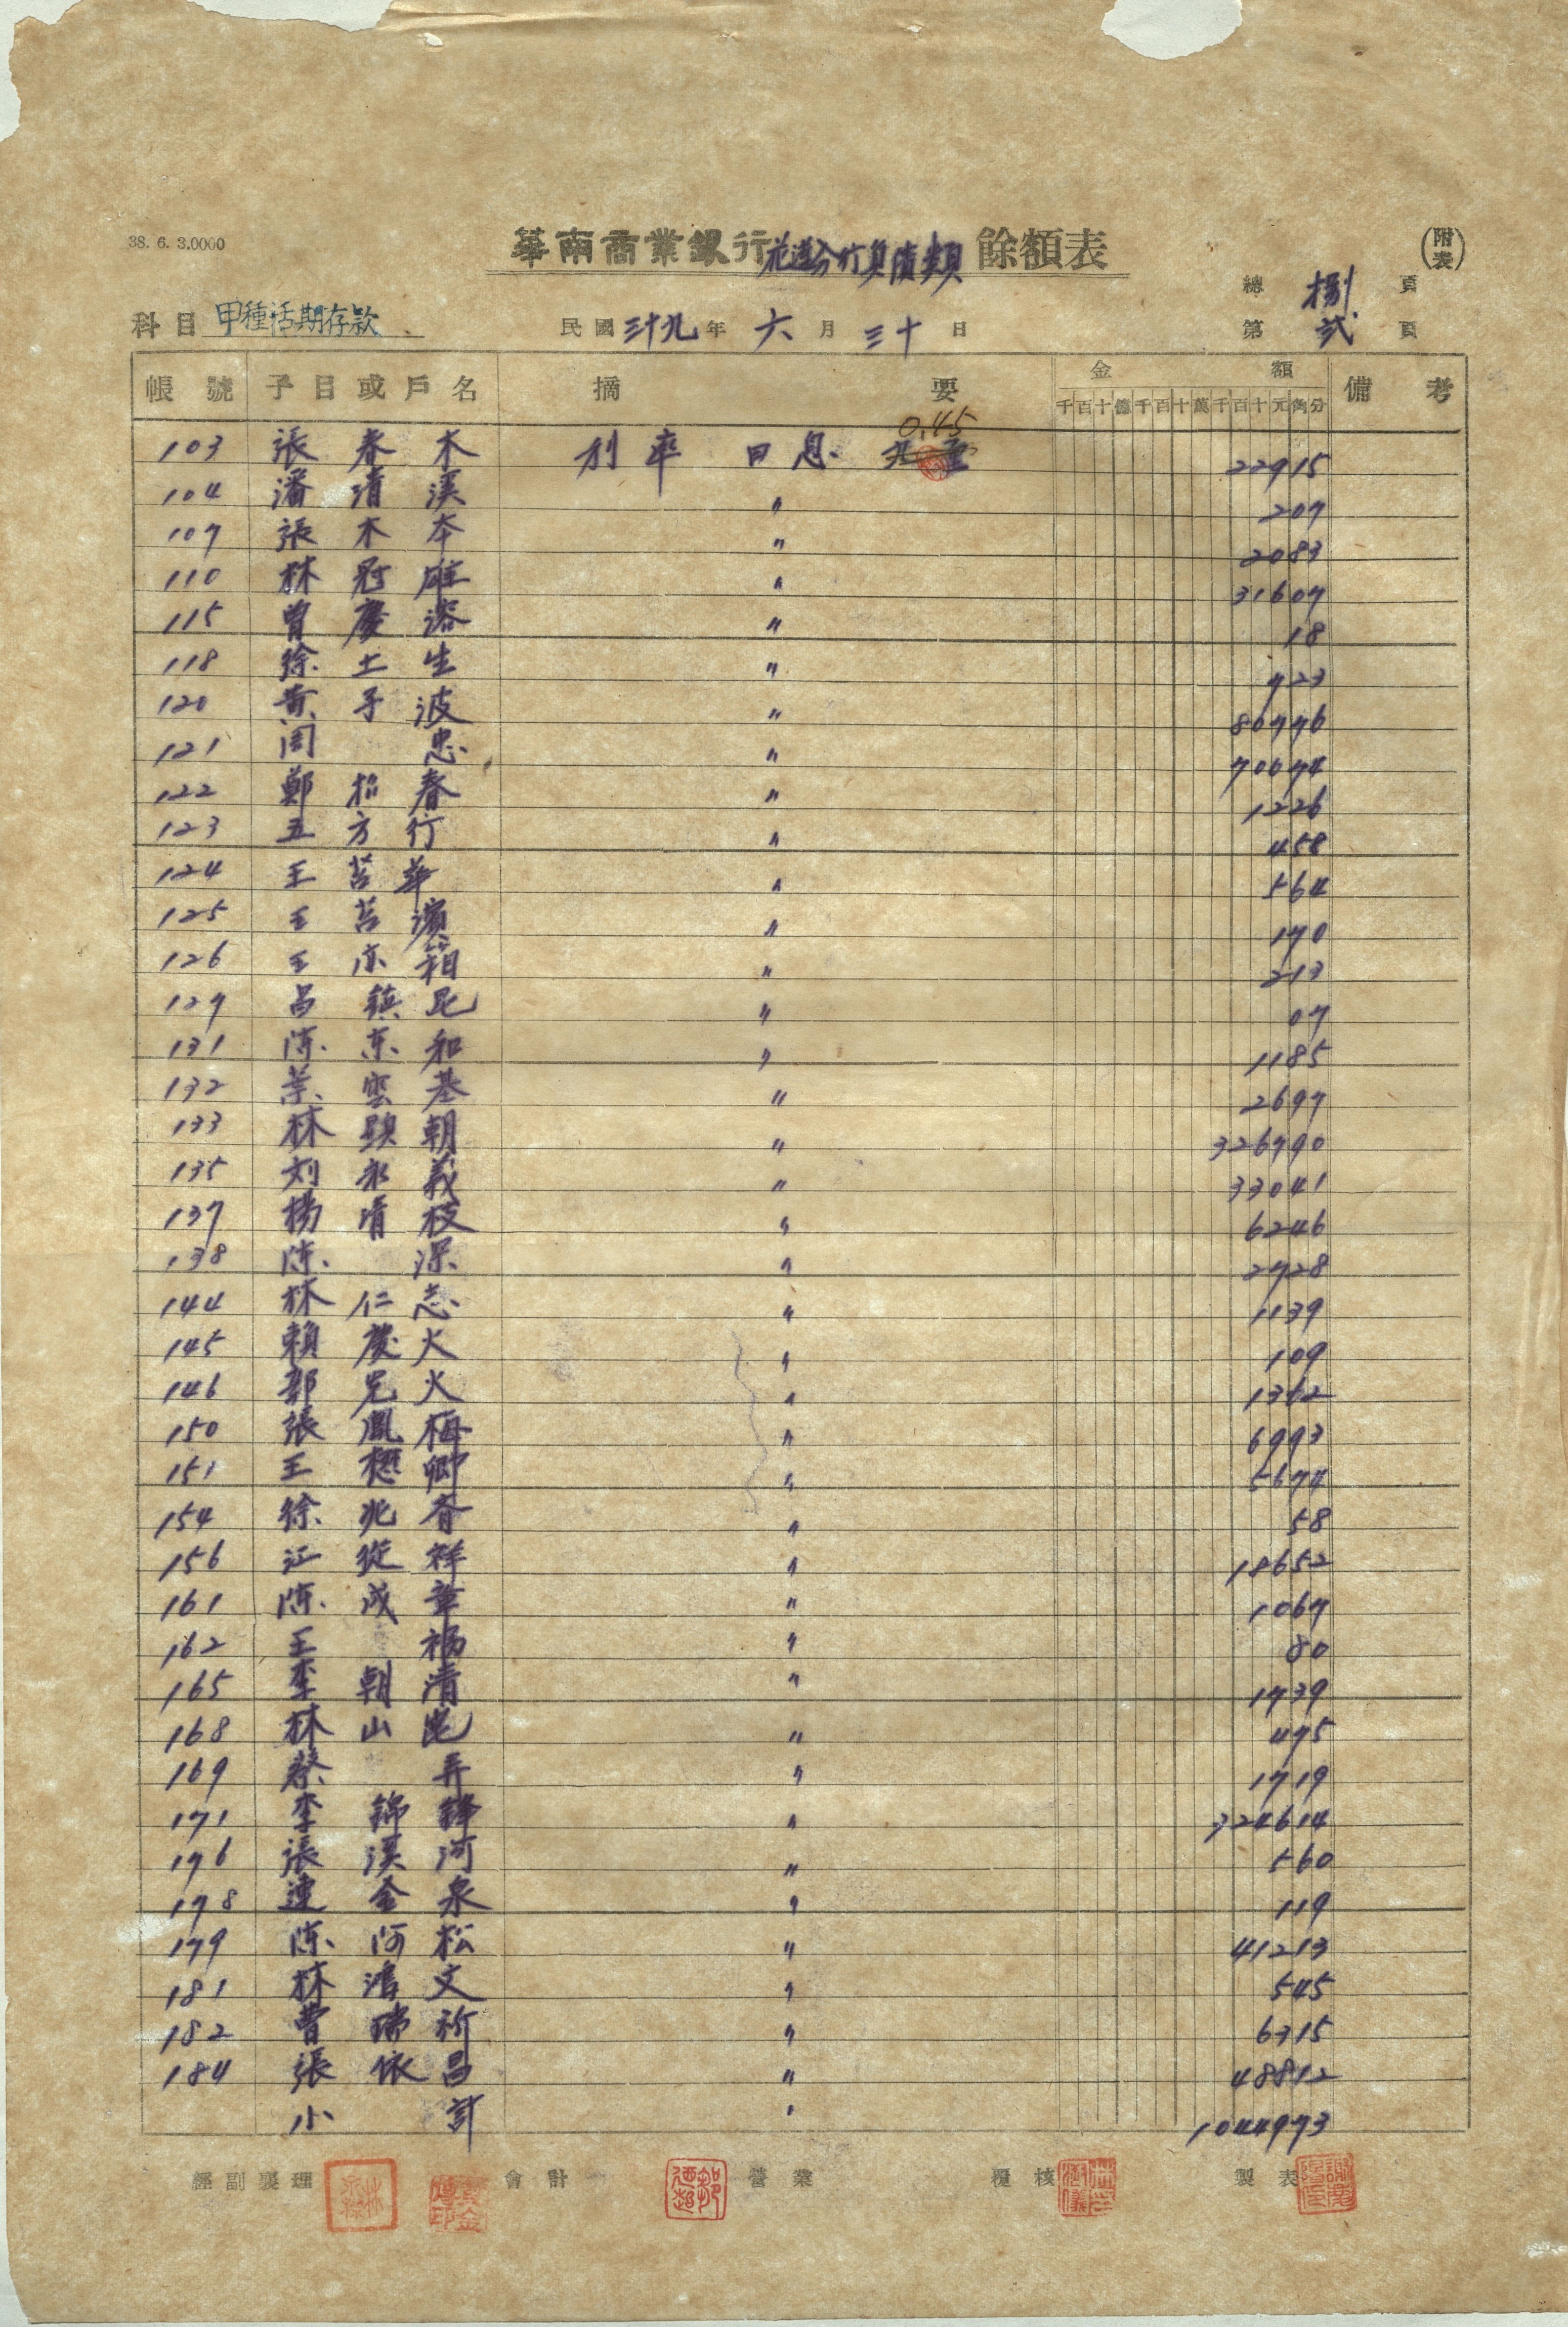 38. 6. 3.0000
華南商業銀行花蓮分行負債類餘額表
(附表)
總 捌 頁
科目 甲種活期存款 民國三十九年 六 月 三十 日 第 弍 頁
帳號 子目或戶名 摘要 金額 備考
千百十億千百十萬千百十元角分
0.45
103 張春木 利率 日息 22915
104 潘清溪 〃 207
107 張木本 〃 2083
110 林冠雄 〃 31607
115 曾慶溶 〃 18
118 徐土生 〃 723
120 黃子波 〃 86776
121 周忠 〃 70674
122 鄭招春 〃 1226
123 五方行 〃 458
124 王苔華 〃 564
125 王苔濱 〃 170
126 王添箱 〃 213
127 呂鎮昆 〃 07
131 陳東和 〃 1185
132 葉雲基 〃 2697
133 林顕朝 〃 326790
135 刘永義 〃 33041
137 楊清枝 〃 6246
138 陳深 〃 2728
144 林仁志 〃 1139
145 賴慶火 〃 109
146 郭兄火 〃 1362
150 張鳳梅 〃 6993
151 王懋卿 〃 5674
154 徐兆香 〃 58
156 江從祥 〃 18652
161 陳成章 〃 1067
162 王福 〃 80
165 李朝清 〃 1739
168 林山崑 〃 475
169 蔡弄 〃 1719
171 李錦鋒 〃 324614
176 張溪河 〃 560
178 連金泉 〃 119
179 陳阿松 〃 41213
181 林清文 〃 545
182 曹瑞祈 〃 6315
184 張依昌 〃 48812
小計 〃 1044973
經副襄理 會計 營業 覆核 製表